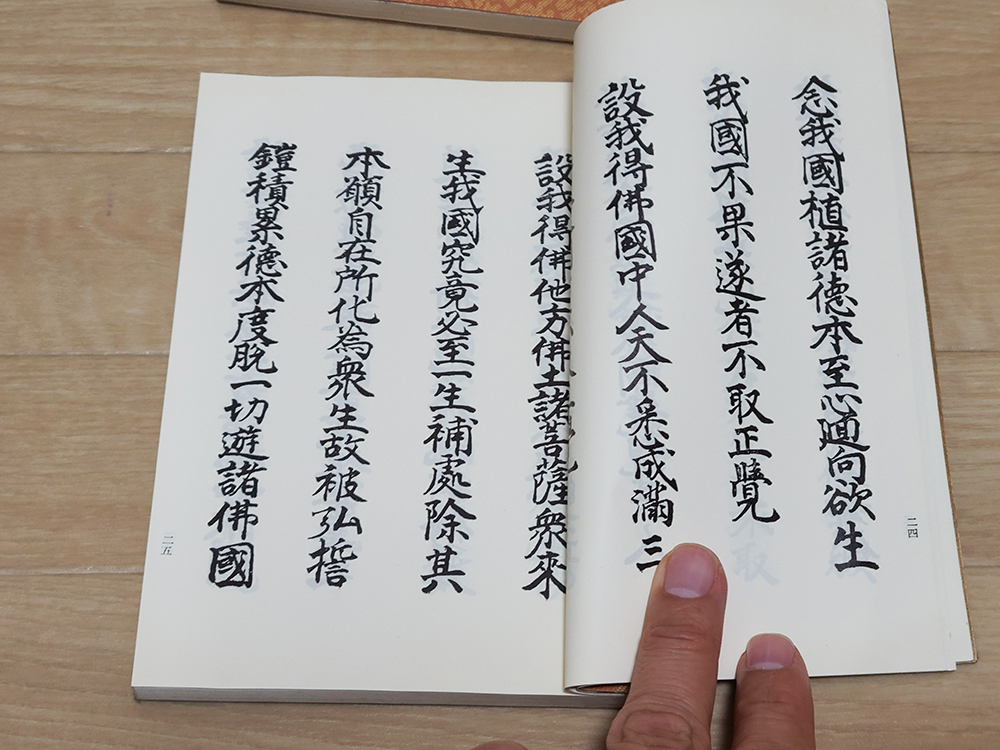 念我國植諸德本至心迴向欲生
我國不果遂者不取正覺
設我得佛國中人天不悉成滿三
二四
設我得佛他方佛土諸菩薩眾來
生我國究竟必至一生補處除其
本願自在所化為眾生故被弘誓
鎧積累德本度脫一切遊諸佛國
二五